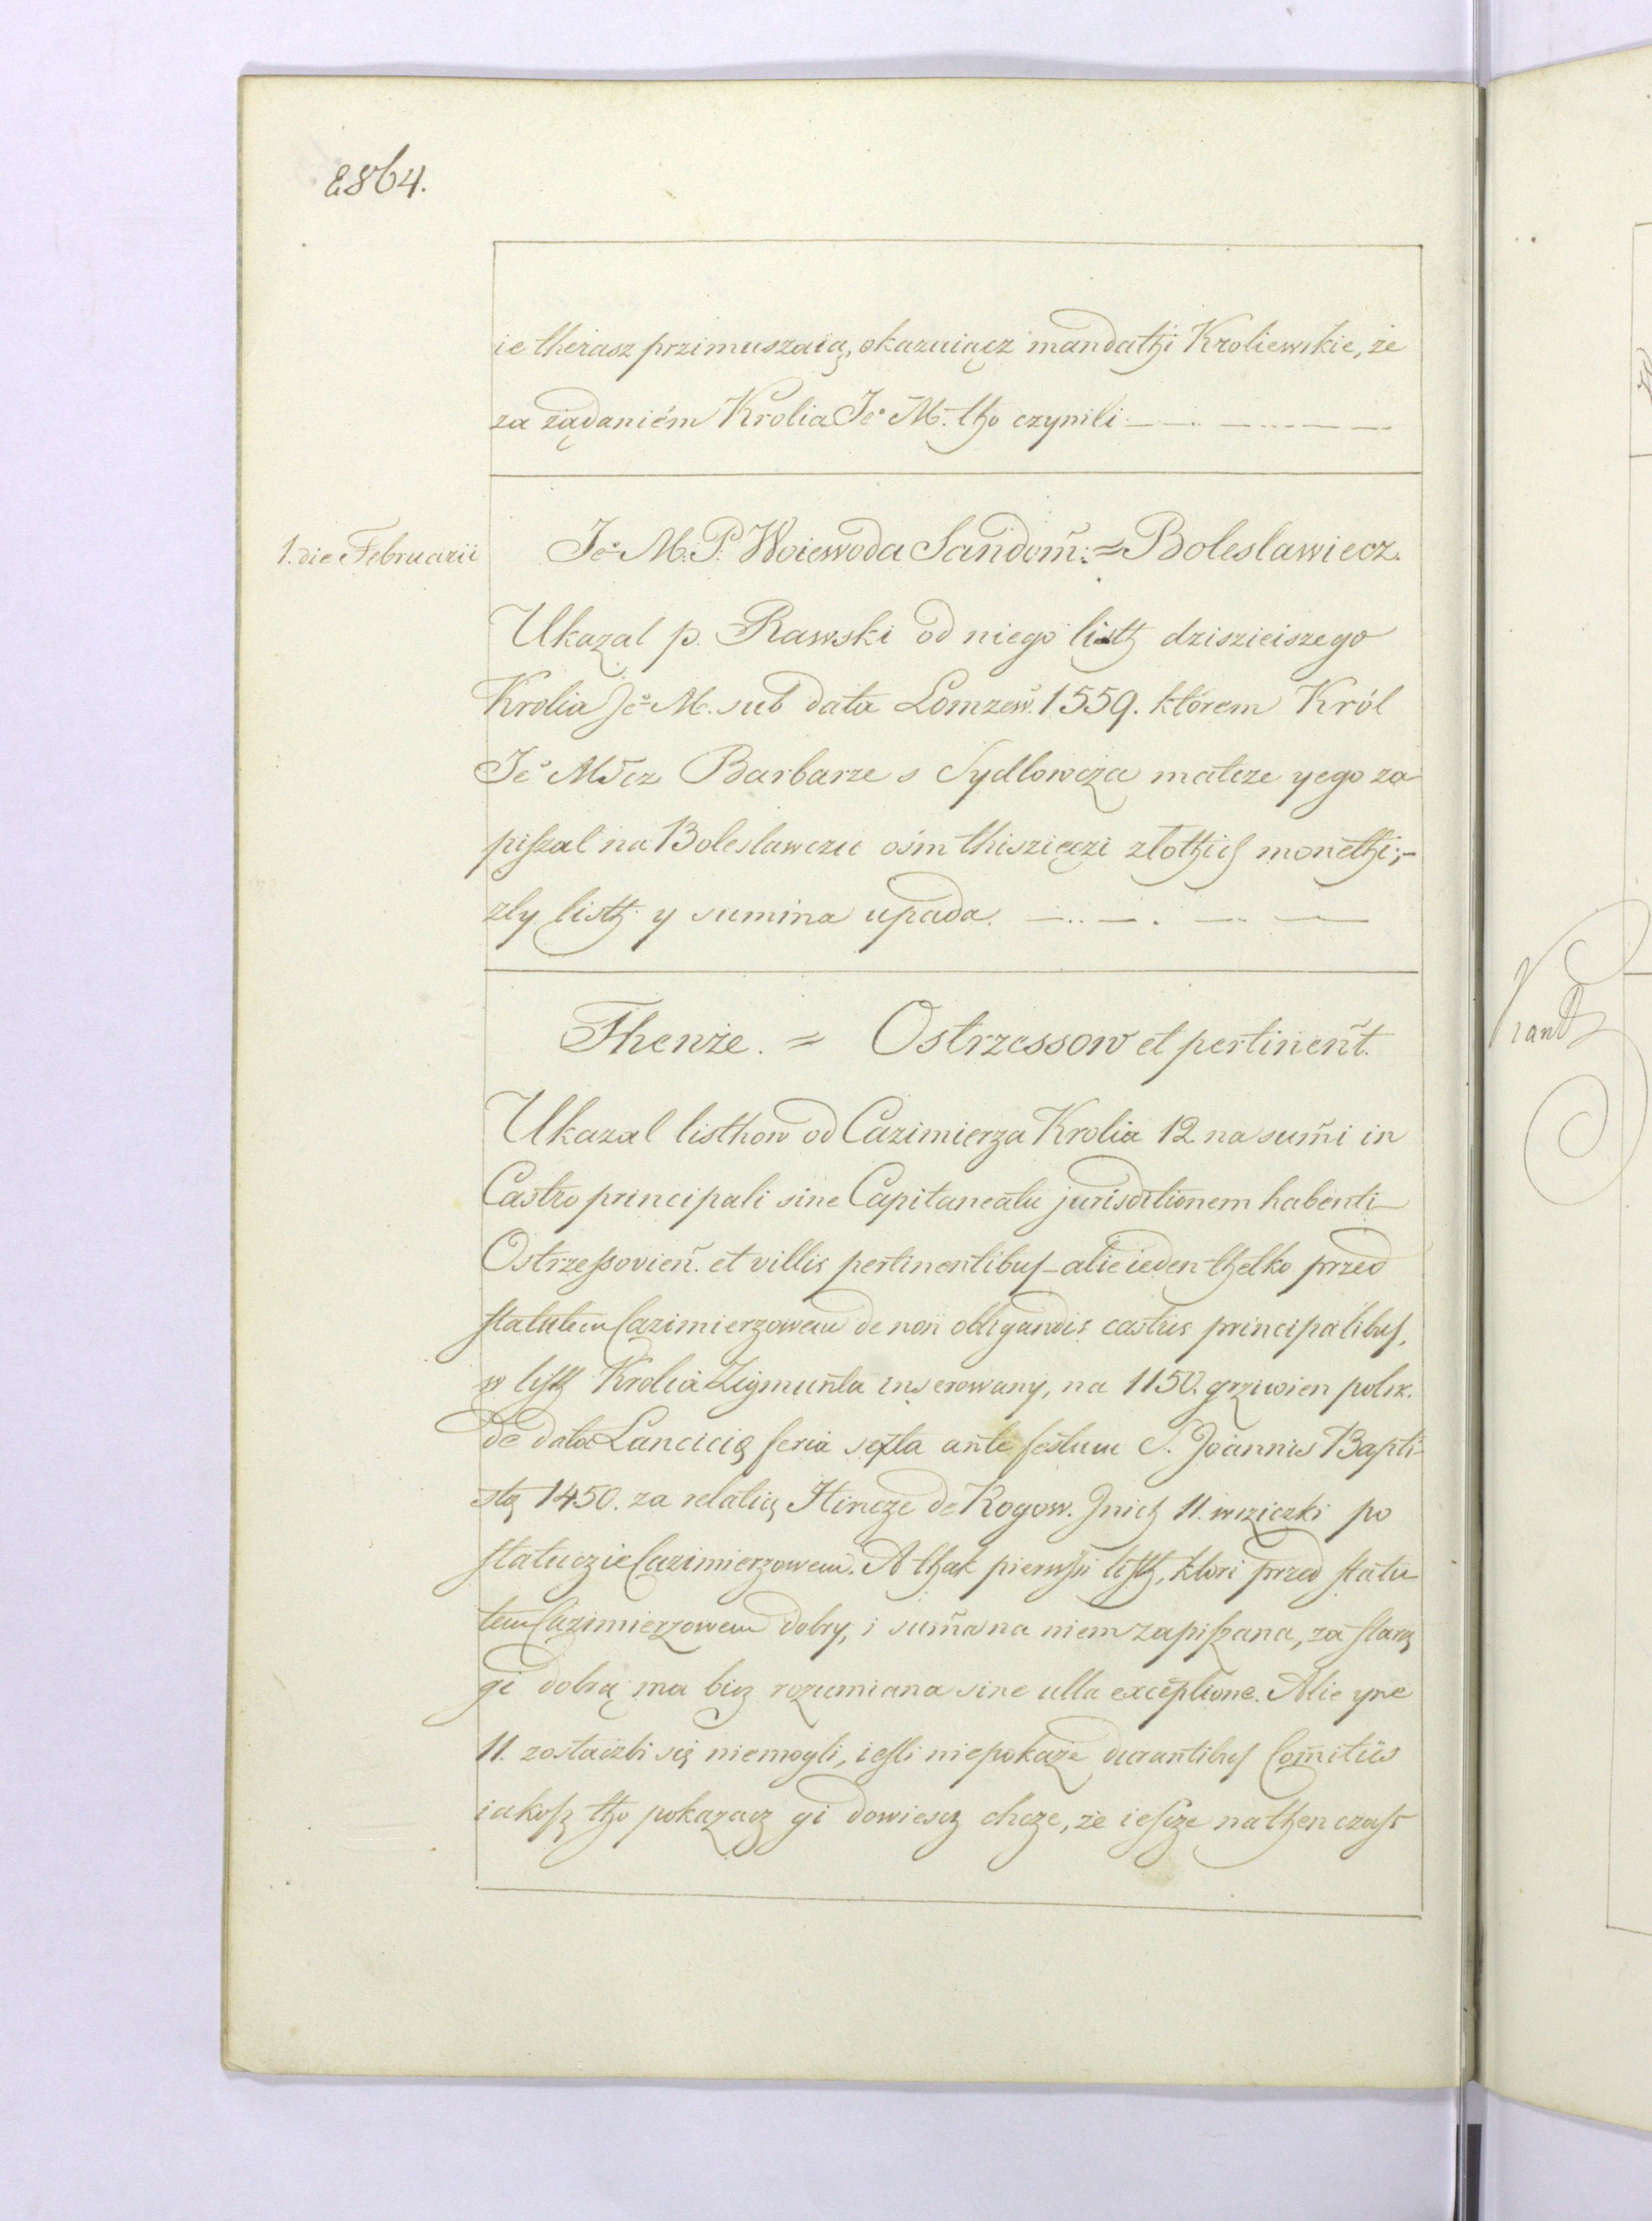 2864.
ie therasz przimuszaią, okazuiącz mandathi Kroliewskie, że
za żądaniem Krolia Je° M. tho czynili
1. die Februarii
Je° M. P. Woiewoda Sandom̄. = Boleslawiecz.
Ukazal p. Rawski od niego listh dzisieiszego
Krolia Je° M. sub data Lomzew. 1559. którem Król
Je° Mscz Barbarze s Sydlowcza matcze yego za
piszal na Boleslawczu ośm thisziączi złothich monethi;-
zly listh y summa upada.
Thenże. = Ostrzessow et pertinen̄t.
Ukazal listhow od Cazimierza Krolia 12 na sum̄i in
Castro principali sine Capitaneatu jurisditionem habenti
Ostrzessovien̄. et villis pertinentibus - alie ieden thelko przed
statutem Cazimierzowem de non obligandis castris principalibus,
w listh Krolia Zigmunta inserowany, na 1150. grziwien polsk.
de data Lancicię feria sexta ante festum S. Joannis Bapti-
stę 1450. za relatią Hincze de Rogow. Jnich 11. wziczki po
statuczie Cazimierzowem. A thak pierwszi listh, ktori przed statu
tem Cazimierzowem dobry, i sum̄a na niem zapiszana, za starą
gi dobrą ma bicz rozumiana sine ulla exceptione. Alie yne
11. zostaczbi się niemogli, iesli niepokaże durantibus Com̄itiis
iakosz tho pokazacz gi dowiescz chcze, że iescze na then czass
Vrant